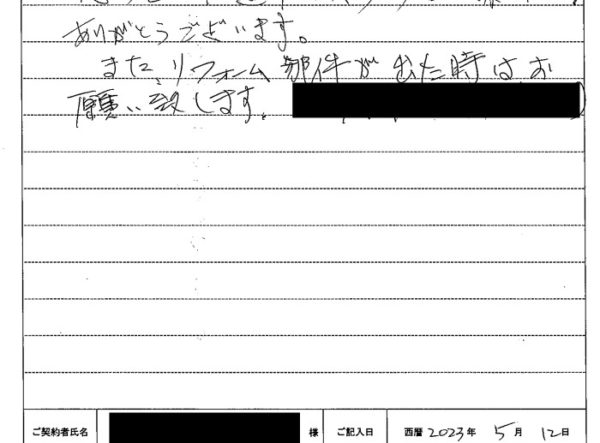 ありがとうございます。
また、リフォーム部件が出た時はお
願い致します。
ご契約者氏名 様 ご記入日 西暦 2023年 5月 12日